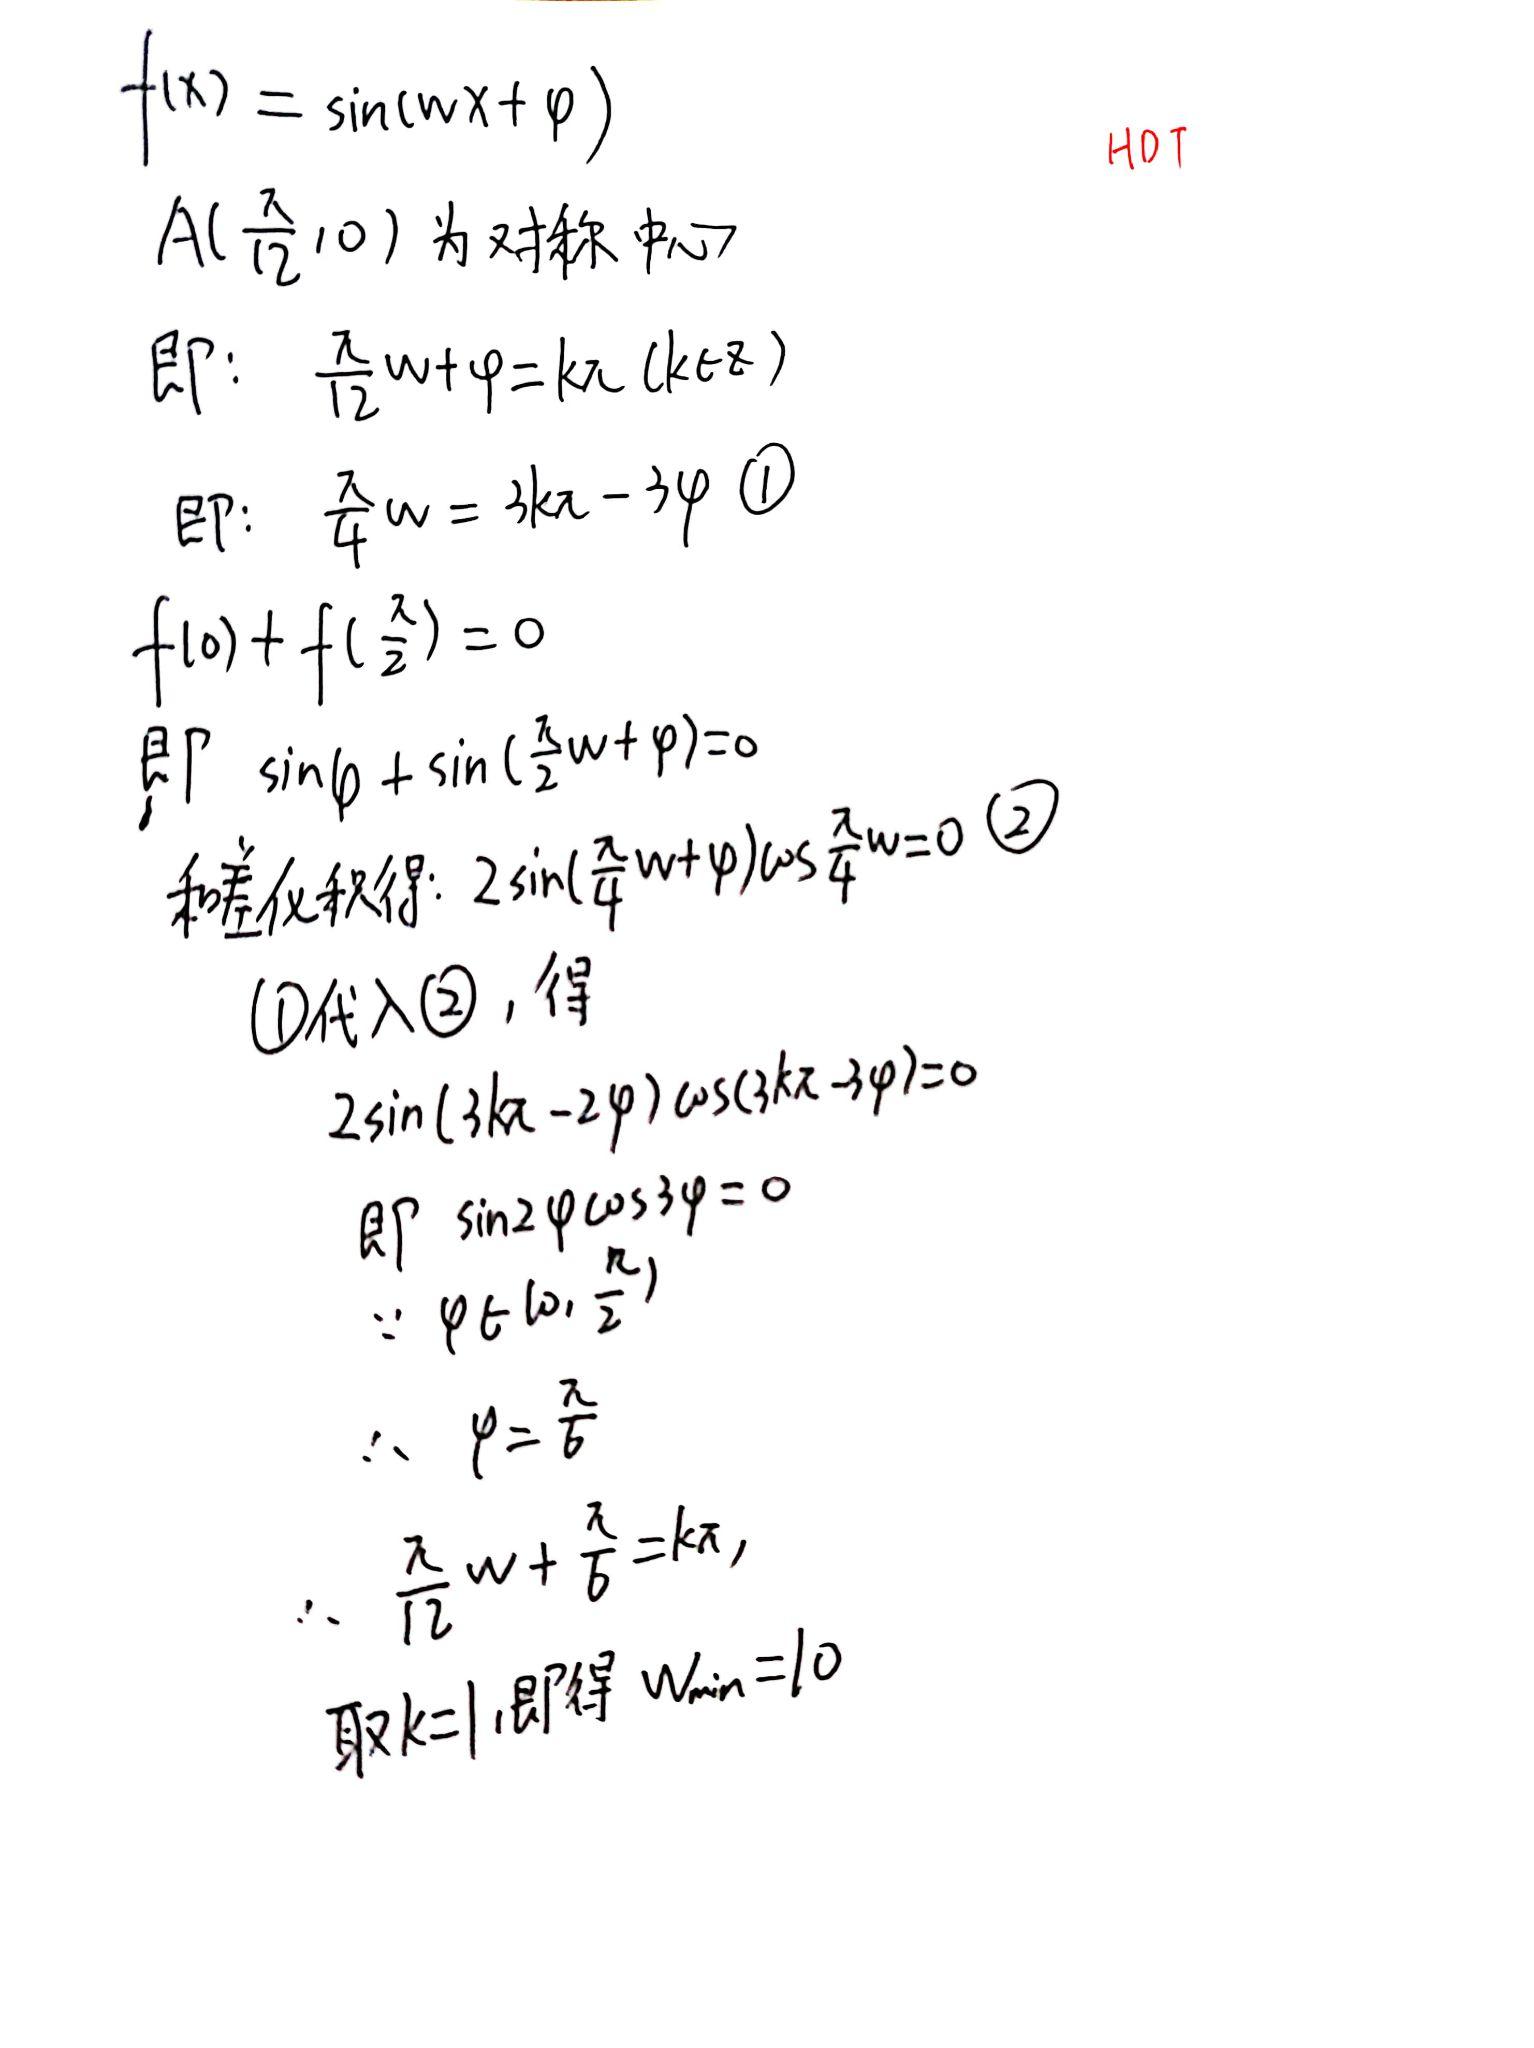 f(x) = sin(wx+φ)
HOT
A(π/12,0)为对称中心
即: π/12 w+φ=kπ (k∈z)
即: π/4 w = 3kπ-3φ ①
f(0)+f(π/2)=0
即 sinφ+sin(π/2 w+φ)=0
和差化积得: 2sin(π/4 w+φ)cos π/4 w=0 ②
①代入②,得
2sin(3kπ-2φ)cos(3kπ-3φ)=0
即 sin2φcos3φ=0
∵ φ∈(0,π/2)
∴ φ=π/6
∴ π/12 w+π/6=kπ,
取k=1,即得 wmin=10